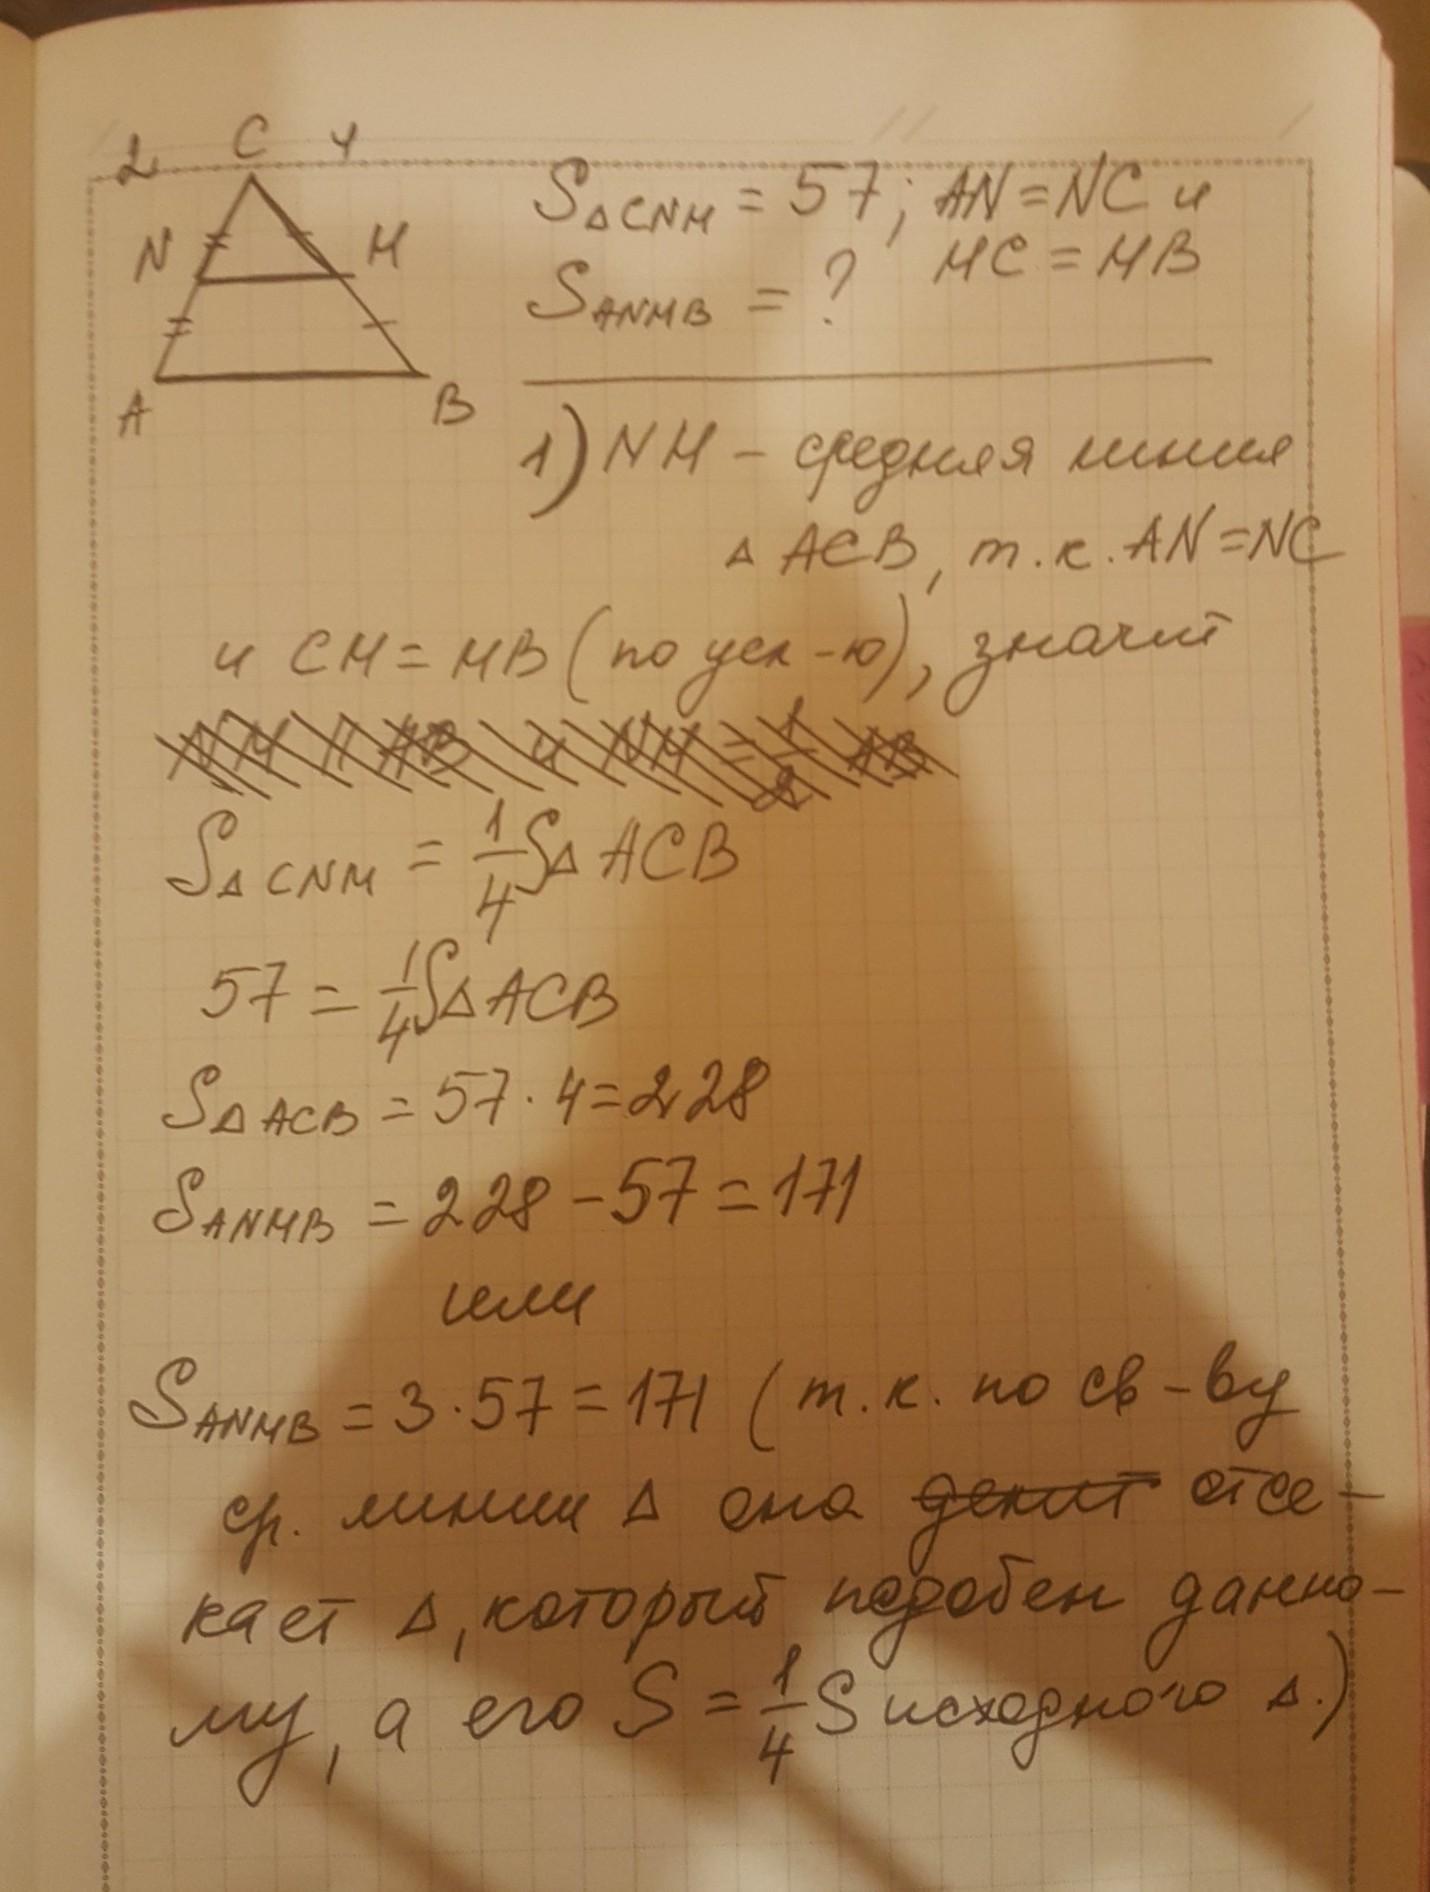 C
N
M
A
B
S△CNM = 57; AN = NC и
MC = MB
SANMB = ?
1) NM – средняя линия
△ ACB, т.к. AN = NC
и CM = MB (по усл-ю), значит
NM || AB и NM = 1/2 AB
S△CNM = 1/4 S△ACB
57 = 1/4 S△ACB
S△ACB = 57 · 4 = 228
SANMB = 228 – 57 = 171
или
SANMB = 3 · 57 = 171 (т.к. по св-ву
ср. линии △ она делит отсе-
кает △, который подобен данно-
му, а его S = 1/4 S исходного △.)